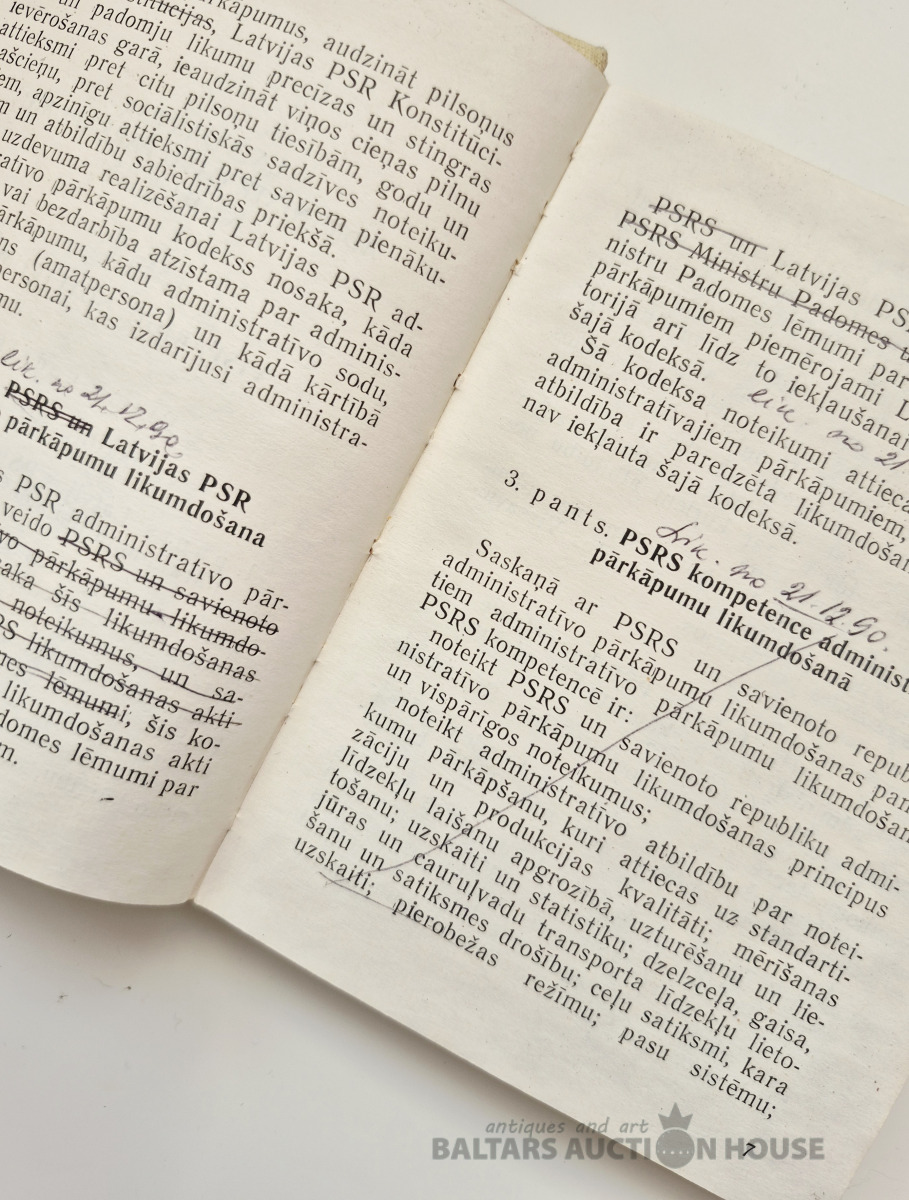 pārkāpumus, audzināt pilsoņus
Latvijas PSR Konstitūci-
un padomju likumu precīzas un stingras
ievērošanas garā, ieaudzināt viņos cieņas pilnu
attieksmi pret citu pilsoņu tiesībām, godu un
pašcieņu, pret sociālistiskās sadzīves noteiku-
apzinīgu attieksmi pret saviem pienāku-
un atbildību sabiedrības priekšā.
uzdevuma realizēšanai Latvijas PSR ad-
pārkāpumu kodekss nosaka, kāda
vai bezdarbība atzīstama par adminis-
pārkāpumu, kādu administratīvo sodu,
(amatpersona) un kādā kārtībā
personai, kas izdarījusi administra-
lik. no 21.12.90.
PSRS un Latvijas PSR
pārkāpumu likumdošana
PSR administratīvo pār-
veido PSRS un savienoto
pārkāpumu likumdo-
šīs likumdošanas
noteikumus, un sa-
likumdošanas akti
lēmumi, šīs ko-
likumdošanas akti
lēmumi par
PSRS un Latvijas
PSRS Ministru Padomes
nistru Padomes lēmumi par
pārkāpumiem piemērojami
torijā arī līdz to iekļaušanai
šajā kodeksā. lik. no 21
Šā kodeksa noteikumi
administratīvajiem pārkāpumiem,
atbildība ir paredzēta
nav iekļauta šajā kodeksā.
lik. no 21.12.90.
3. pants. PSRS kompetence
pārkāpumu likumdošanā
Saskaņā ar PSRS un savienoto
administratīvo pārkāpumu likumdošanas
tiem administratīvo pārkāpumu
PSRS kompetencē ir:
noteikt PSRS un savienoto republiku admi-
nistratīvo pārkāpumu likumdošanas principus
un vispārīgos noteikumus;
noteikt administratīvo atbildību par notei-
kumu pārkāpšanu, kuri attiecas uz standarti-
zāciju un produkcijas kvalitāti; mērīšanas
līdzekļu laišanu apgrozībā, uzturēšanu un lie-
tošanu; uzskaiti un statistiku; dzelzceļa, gaisa,
jūras un cauruļvadu transporta līdzekļu lieto-
šanu un satiksmes drošību; ceļu satiksmi, kara
uzskaiti; pierobežas režīmu; pasu sistēmu;
7
antiques and art
BALTARS AUCTION HOUSE